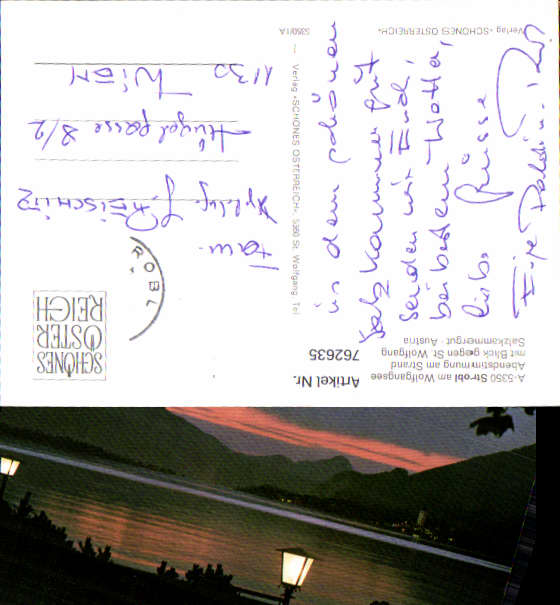 A-5350 Strobl am Wolfgangsee
Abendstimmung am Strand
mit Blick gegen St. Wolfgang
Salzkammergut · Austria
Artikel Nr.
762635
SCHÖNES
ÖSTER
REICH
Verlag »SCHÖNES ÖSTERREICH«
Verlag »SCHÖNES ÖSTERREICH«, 5360 St. Wolfgang Tel
5350/1A
in dem schönen
Salzkammergut
senden wir Euch,
bei bestem Wetter,
liebe Grüsse
Eure
Fam.
1130 WIEN
STROBL